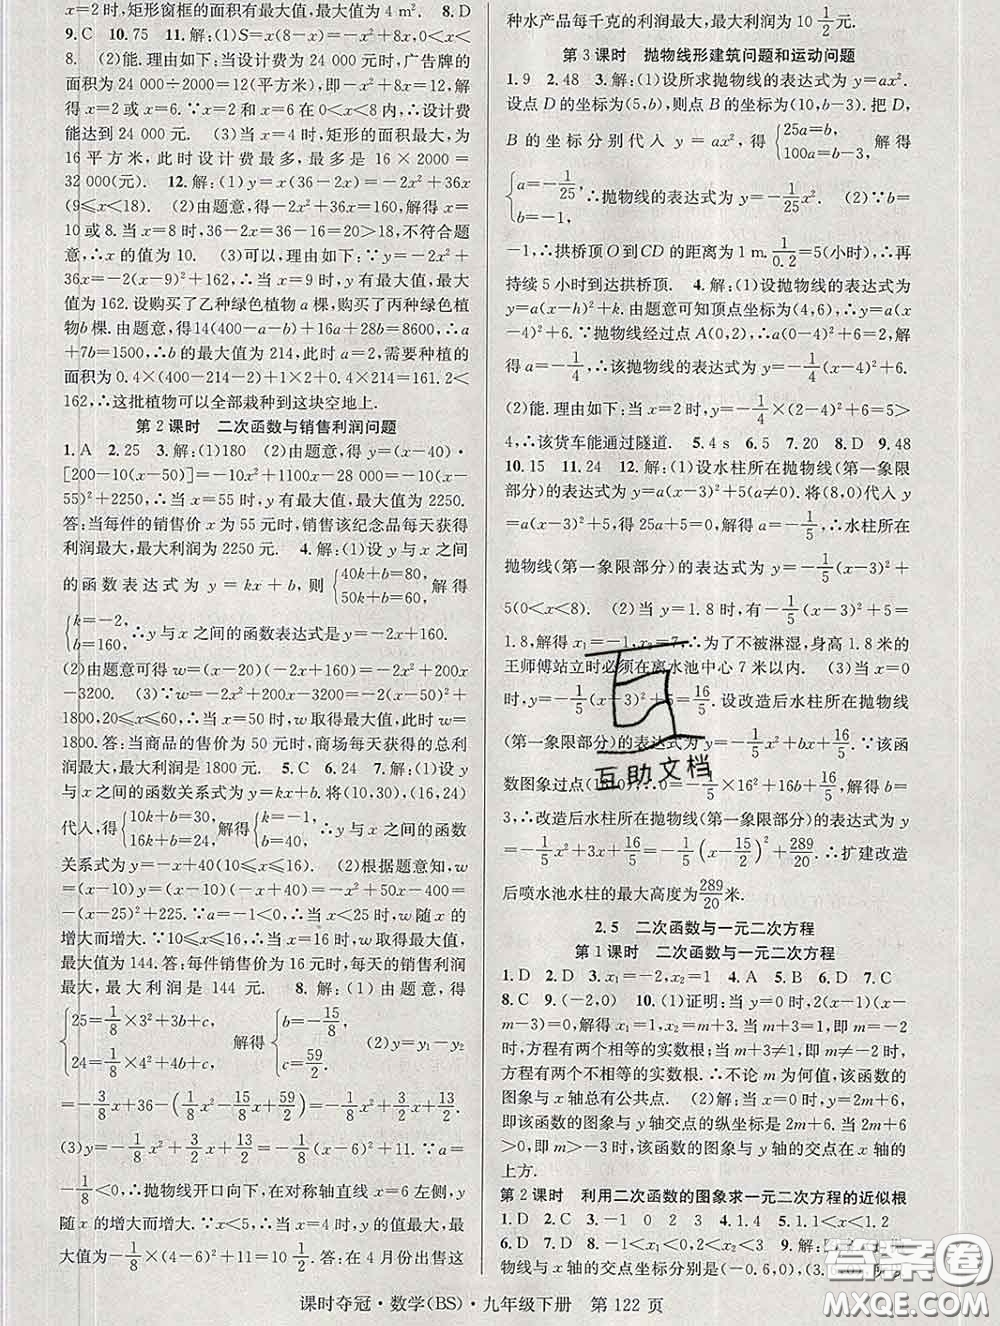 x=2时,矩形窗框的面积有最大值,最大值为4 m². 8.D
9.C 10.75 11.解:(1)S=x(8-x)=-x²+8x,0<x<
8. (2)能.理由如下:当设计费为24 000元时,广告牌的
面积为24 000÷2000=12(平方米),即-x²+8x=12,解
得x=2或x=6.∵x=2和x=6在0<x<8内,∴设计费
能达到24 000元. (3)当x=4时,矩形的面积最大,为
16平方米,此时设计费最多,最多是16×2000=
32 000(元). 12.解:(1)y=x(36-2x)=-2x²+36x
(9≤x<18). (2)由题意,得-2x²+36x=160,解得x=
10或8.当x=8时,36-2x=36-16=20>18,不符合题
意,∴x的值为10. (3)可以,理由如下:∵y=-2x²+
36x=-2(x-9)²+162,∴当x=9时,y有最大值,最大
值为162.设购买了乙种绿色植物a棵,购买了丙种绿色植
物b棵.由题意,得14(400-a-b)+16a+28b=8600,∴a
+7b=1500,∴b的最大值为214,此时a=2,需要种植的
面积为0.4×(400-214-2)+1×2+0.4×214=161.2<
162,∴这批植物可以全部栽种到这块空地上.
第2课时 二次函数与销售利润问题
1.A 2.25 3.解:(1)180 (2)由题意,得y=(x-40)·
[200-10(x-50)]=-10x²+1100x-28 000=-10(x-
55)²+2250,∴当x=55时,y有最大值,最大值为2250.
答:当每件的销售价x为55元时,销售该纪念品每天获得
利润最大,最大利润为2250元. 4.解:(1)设y与x之间
的函数表达式为y=kx+b,则{40k+b=80, 50k+b=60, 解得
{k=-2, b=160, ∴y与x之间的函数表达式是y=-2x+160.
(2)由题意可得w=(x-20)(-2x+160)=-2x²+200x
-3200. (3)∵w=-2x²+200x-3200=-2(x-50)²+
1800,20≤x≤60,∴当x=50时,w取得最大值,此时w=
1800.答:当商品的售价为50元时,商场每天获得的总利
润最大,最大利润是1800元. 5.C 6.24 7.解:(1)设y
与x之间的函数关系式为y=kx+b.将(10,30),(16,24)
代入,得{10k+b=30, 16k+b=24, 解得{k=-1, b=40, ∴y与x之间的函数
关系式为y=-x+40(10≤x≤16). (2)根据题意知,w=
(x-10)y=(x-10)(-x+40)=-x²+50x-400=-
(x-25)²+225.∵a=-1<0,∴当x<25时,w随x的
增大而增大.∵10≤x≤16,∴当x=16时,w取得最大值,
最大值为144.答:每件销售价为16元时,每天的销售利润
最大,最大利润是144元. 8.解:(1)由题意,得
{25=1/8×3²+3b+c, 24=1/8×4²+4b+c, 解得{b=-15/8, c=59/2. (2)y=y₁-y₂
=-3/8x+36-(1/8x²-15/8x+59/2)=-1/8x²+3/2x+13/2.
(3)y=-1/8x²+3/2x+13/2=-1/8(x-6)²+11.∵a=
-1/8<0,∴抛物线开口向下,在对称轴直线x=6左侧,y
随x的增大而增大.∵x<5,∴当x=4时,y有最大值,最
大值为-1/8×(4-6)²+11=10 1/2.答:在4月份出售这
种水产品每千克的利润最大,最大利润为10 1/2元.
第3课时 抛物线形建筑问题和运动问题
1.9 2.48 3.解:(1)设所求抛物线的表达式为y=ax².
设点D的坐标为(5,b),则点B的坐标为(10,b-3).把D,
B的坐标分别代入y=ax²,得{25a=b, 100a=b-3, 解得
{a=-1/25, b=-1, ∴抛物线的表达式为y=-1/25x². (2)∵b=
-1,∴拱桥顶O到CD的距离为1 m.1/0.2=5(小时),∴再
持续5小时到达拱桥顶. 4.解:(1)设抛物线的表达式为
y=a(x-h)²+k.由题意可知顶点坐标为(4,6),∴y=a(x
-4)²+6.∵抛物线经过点A(0,2),∴a(0-4)²+6=2,解
得a=-1/4,∴该抛物线的表达式为y=-1/4(x-4)²+6.
(2)能.理由如下:当x=2时,y=-1/4×(2-4)²+6=5>
4,∴该货车能通过隧道. 5.4 s 6.5 7.20 8.D 9.48
10.15 11.24 12.解:(1)设水柱所在抛物线(第一象限
部分)的表达式为y=a(x-3)²+5(a≠0).将(8,0)代入
y=a(x-3)²+5,得25a+5=0,解得a=-1/5,∴水柱所在
抛物线(第一象限部分)的表达式为y=-1/5(x-3)²+
5(0<x<8). (2)当y=1.8时,有-1/5(x-3)²+5=
1.8,解得x₁=-1,x₂=7,∴为了不被淋湿,身高1.8米的
王师傅站立时必须在离水池中心7米以内. (3)当x=0
时,y=-1/5(x-3)²+5=16/5.设改造后水柱所在抛物线
(第一象限部分)的表达式为y=-1/5x²+bx+16/5.∵该函
数图象过点(16,0),∴0=-1/5×16²+16b+16/5,解得b=
3,∴改造后水柱所在抛物线(第一象限部分)的表达式为y
=-1/5x²+3x+16/5=-1/5(x-15/2)²+289/20.∴扩建改造
后喷水池水柱的最大高度为289/20米.
2.5 二次函数与一元二次方程
第1课时 二次函数与一元二次方程
1.D 2.D 3.x₁=-2,x₂=1 4.A 5.B 6.D 7.C
8.C 9.(-2,0) 10.(1)证明:当y=0时,2(x-1)(x-
m-3)=0,解得x₁=1,x₂=m+3.当m+3=1,即m=-2
时,方程有两个相等的实数根;当m+3≠1,即m≠-2时,
方程有两个不相等的实数根.∴不论m为何值,该函数的
图象与x轴总有公共点. (2)解:当x=0时,y=2m+6,
即该函数的图象与y轴交点的纵坐标是2m+6.当2m+6
>0,即m>-3时,该函数的图象与y轴的交点在x轴的
上方.
第2课时 利用二次函数的图象求一元二次方程的近似根
1.D 2.C 3.-1 0 2 3 4.1.4 5.1.1<x<1.2
6.D 7.D 8.-1<x₁<0,2<x₂<3 9.解:
物线与x轴的交点坐标分别是(-0.6,0),
课时夺冠·数学(BS)·九年级下册 第122页
互助文档
答案圈
MXQE.COM